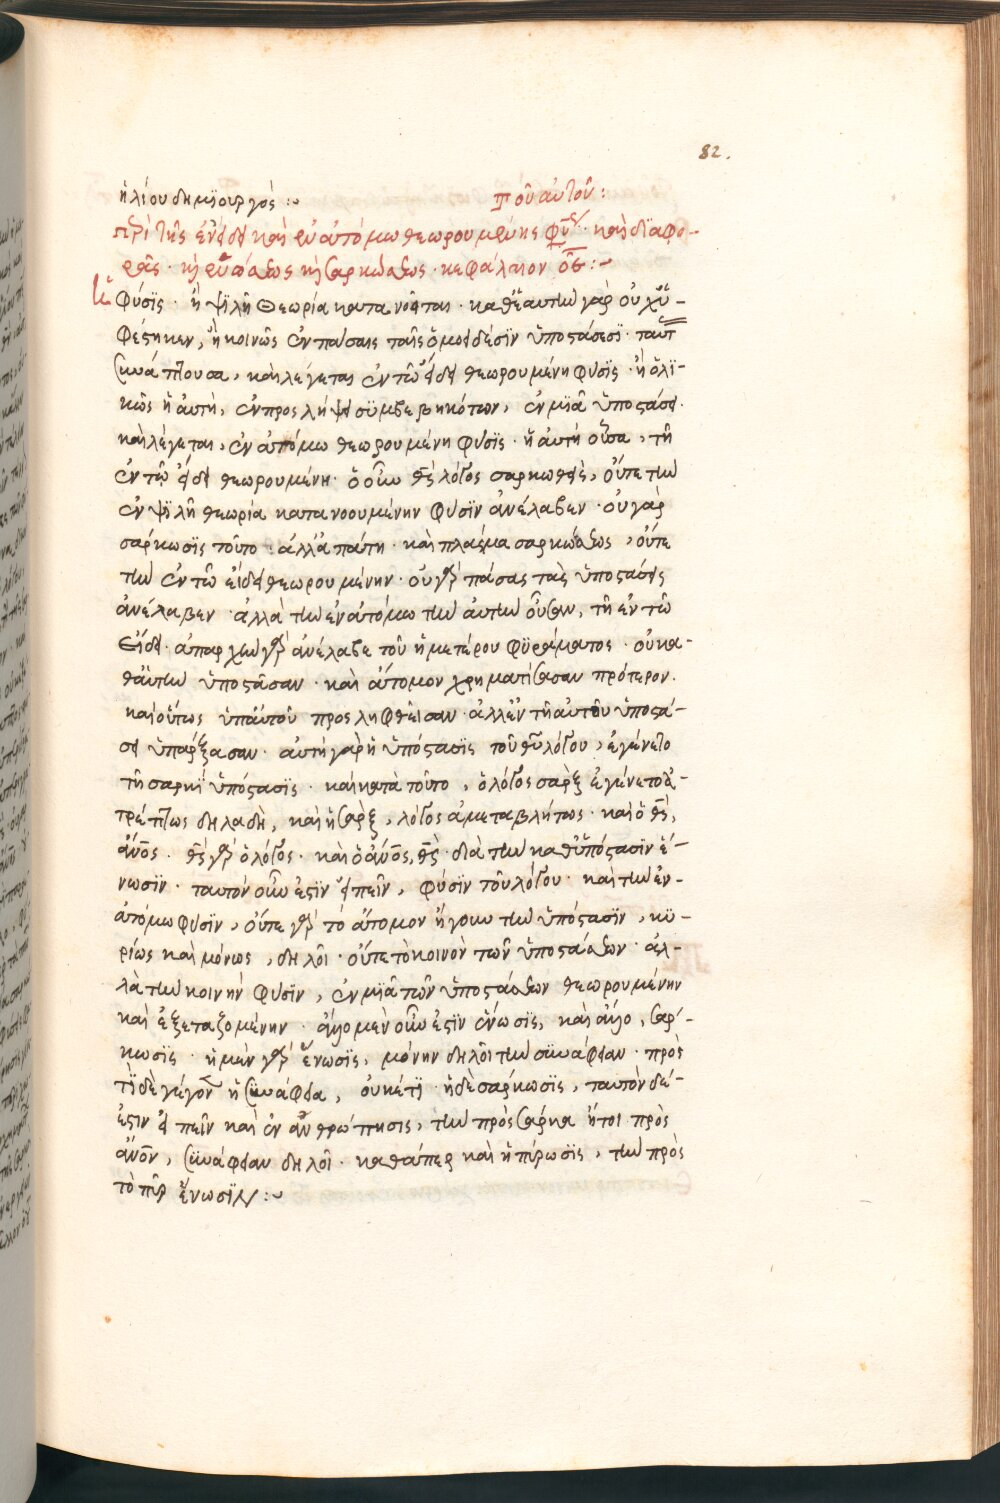 82.
ἡλίου δημϊουργός :~ τοῦ αὐτοῦ :
περὶ τῆς ἐν εἴδει καὶ ἐν ἀτόμω θεωρουμένης φύσεως · καὶ διαφο-
ρᾶς · καὶ ἑνώσεως καὶ σαρκώσεως · κεφάλαιον οε :~
Φύσϊς · ἢ ψϊλῆ θεωρία κατανοεῖται · καθ ἑαυτὴν γὰρ οὐχ ὑ-
φέστηκεν, ἢ κοινῶς ἐν πάσαις ταῖς ὁμοειδέσϊν ὑποστάσεσϊ · ταύτ
συνάπτουσα, καὶ λέγεται ἐν τῶ εἴδει θεωρουμένη φύσϊς · ἢ ὁλϊ-
κῶς ἡ αὐτὴ, ἐν προσλήψει συμβεβηκότων, ἐν μϊᾶ ὑποστάσει ·
καὶ λέγεται, ἐν ἀτόμω θεωρουμένη φύσϊς · ἡ αὐτὴ οὖσα, τῆ
ἐν τῶ εἴδει θεωρουμένη · ὁ οὖν θς λόγος σαρκωθεὶς, οὔτε τὴν
ἐν ψϊλῆ θεωρία κατανοουμένην φύσϊν ἀνέλαβεν · οὐ γὰρ
σάρκωσϊς τοῦτο · ἀλλ ἀπάτη · καὶ πλάσμα σαρκώσεως, οὔτε
τὴν ἐν τῶ εἴδει θεωρουμένην · οὐ γὰρ πάσας τὰς ὑποστάσεις
ἀνέλαβεν · ἀλλὰ τὴν ἐν ἀτόμω τὴν αὐτὴν οὖσαν, τῆ ἐν τῶ
εἴδει · ἀπαρχὴν γὰρ ἀνέλαβε τοῦ ἡμετέρου φϋράματος · οὐ κα-
θ αὑτὴν ὑποστᾶσαν · καὶ ἄτομον χρηματίσασαν πρότερον ·
καὶ οὕτως ὑπ αὐτοῦ προσληφθεῖσαν · ἀλλ ἐν τῆ αὐτοῦ ὑποστά-
σει ὑπάρξασαν · αὐτὴ γὰρ ἡ ὑπόστασϊς τοῦ θυ λόγου, ἐγένετο
τῆ σαρκὶ ὑπόστασϊς · καὶ κατὰ τοῦτο, ὁ λόγος σὰρξ ἐγένετο ἀ-
τρέπτως δηλαδὴ, καὶ ἡ σὰρξ, λόγος ἀμεταβλήτως · καὶ ὁ θς,
ἄνος · θς γὰρ ὁ λόγος · καὶ ὁ ἄνος, θς · διὰ τὴν καθ ὑπόστασϊν ἕ-
νωσϊν · ταυτὸν οὖν ἐστϊν εἰπεῖν, φύσϊν τοῦ λόγου · καὶ τὴν ἐν
ἀτόμω φύσϊν, οὔτε γὰρ τὸ ἄτομον ἤγουν τὴν ὑπόστασϊν, κϋ-
ρίως καὶ μόνως, δηλοῖ · οὔτε τὸ κοινὸν τῶν ὑποστάσεων · ἀλ-
λὰ τὴν κοινὴν φύσϊν, ἐν μϊᾶ τῶν ὑποστάσεων θεωρουμένην
καὶ ἐξεταζομένην · ἄλλο μὲν οὖν ἐστϊν ἕνωσϊς, καὶ ἄλλο, σάρ-
κωσϊς · ἡ μὲν γὰρ ἕνωσϊς, μόνην δηλοῖ τὴν συνάφειαν · πρὸς
τϊ δὲ γέγονεν ἡ συνάφεια, οὐκέτϊ · ἡ δὲ σάρκωσϊς, ταυτὸν δέ
ἐστιν εἰπεῖν καὶ ἐνανθρώπησις, τὴν πρὸς σάρκα ἤτοι πρὸς
ἄνον, συνάφειαν δηλοῖ · καθάπερ καὶ ἡ πύρωσϊς, τὴν πρὸς
τὸ πῦρ ἕνωσϊν :~